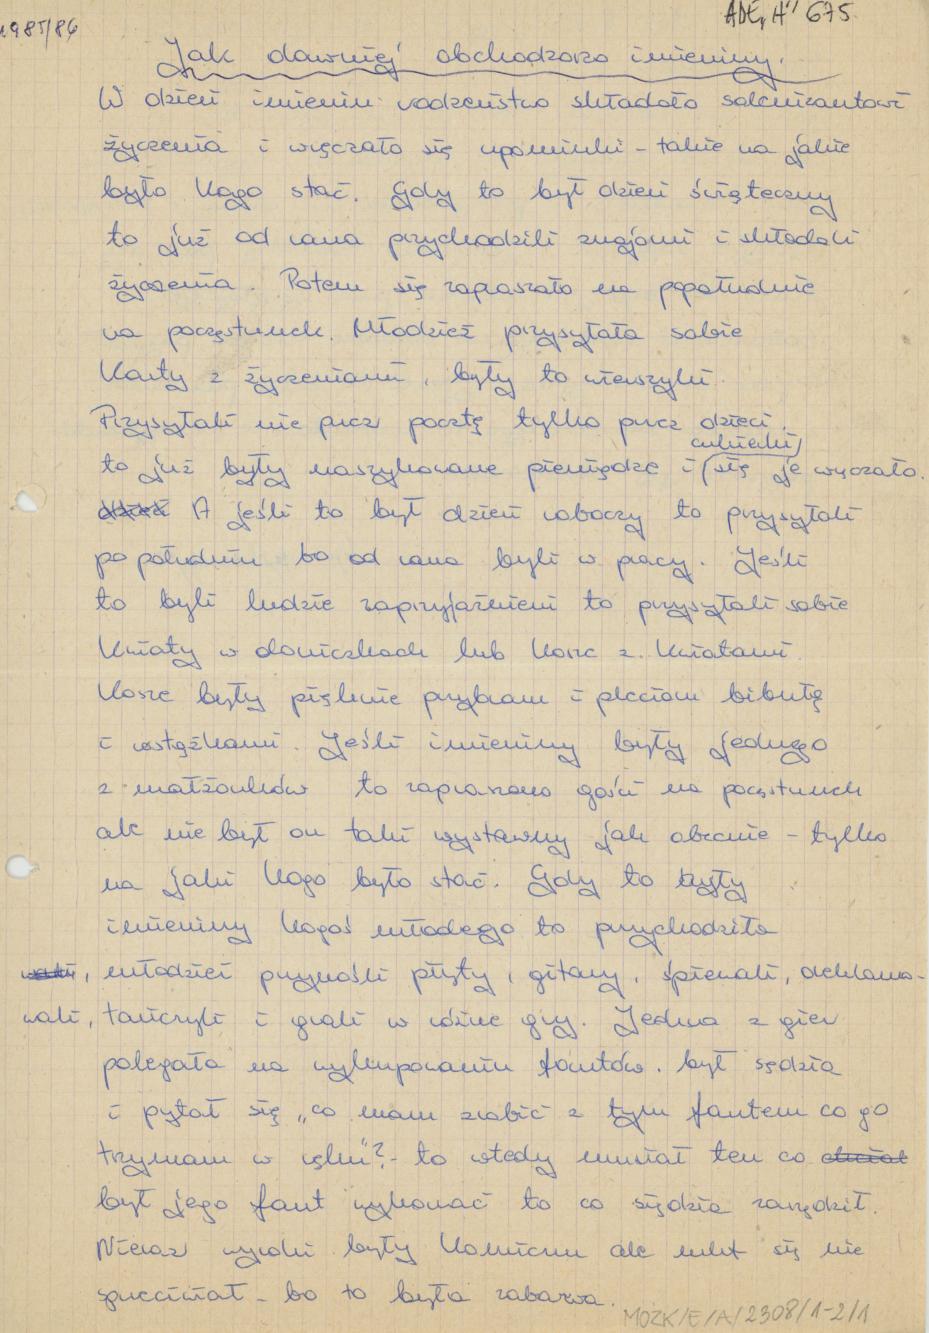 1985/86
ADE, A" 675
Jak dawniej obchodzono imieniny.
W dzień imienin rodzeństwo składało solenizantowi
życzenia i wręczało się upominki - takie na jakie
było kogo stać. Gdy to był dzień świąteczny
to już od rana przychodzili znajomi i składali
życzenia. Potem się zapraszało na popołudnie
na poczęstunek. Młodzież przysyłała sobie
karty z życzeniami, były to wierszyki.
Przysyłali nie przez pocztę tylko przez dzieci,
cukierki
to już były naszykowane pieniądze i się je wręczało.
A jeśli to był dzień roboczy to przysyłali
po południu bo od rana byli w pracy. Jeśli
to byli ludzie zaprzyjaźnieni to przysyłali sobie
kwiaty w doniczkach lub kosze z kwiatami.
Kosze były pięknie przybrane i plecione bibułą
i wstążkami. Jeśli imieniny były jednego
z małżonków to zapraszano gości na poczęstunek
ale nie był on taki wystawny jak obecnie - tylko
na jaki kogo było stać. Gdy to były
imieniny kogoś młodego to przychodziła
młodzież przynosili płyty, gitary, śpiewali, deklamo-
wali, tańczyli i grali w różne gry. Jedna z gier
polegała na wykupowaniu fantów. był sędzia
i pytał się „co mam zrobić z tym fantem co go
trzymam w ręku"? - to wtedy musiał ten co
był jego fant wykonać to co sędzia zarządził.
Nieraz wyroki były komiczne ale nikt się nie
sprzeciwiał - bo to była zabawa.
MOZK/E/A/2308/1-2/1